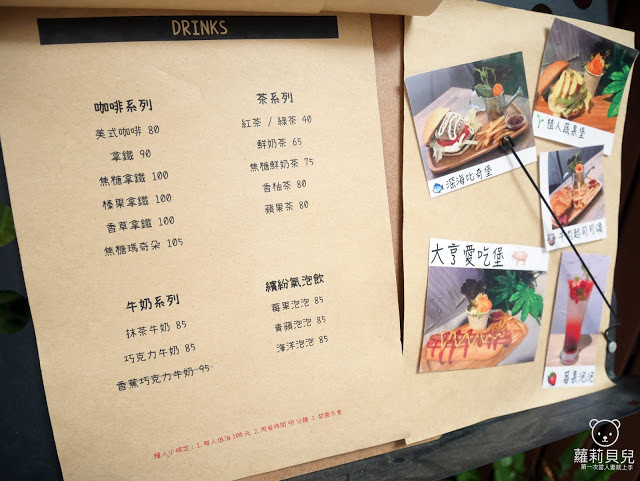 DRINKS
咖啡系列
美式咖啡 80
拿鐵 90
焦糖拿鐵 100
榛果拿鐵 100
香草拿鐵 100
焦糖瑪奇朵 105
茶系列
紅茶 / 綠茶 40
鮮奶茶 65
焦糖鮮奶茶 75
香柚茶 80
蘋果茶 80
牛奶系列
抹茶牛奶 85
巧克力牛奶 85
香蕉巧克力牛奶 95
繽紛氣泡飲
莓果泡泡 85
青蘋泡泡 85
海洋泡泡 85
深海比奇堡
大亨愛吃堡
牛肉起司可頌
莓果泡泡
蘿莉貝兒
第一次當人妻就上手